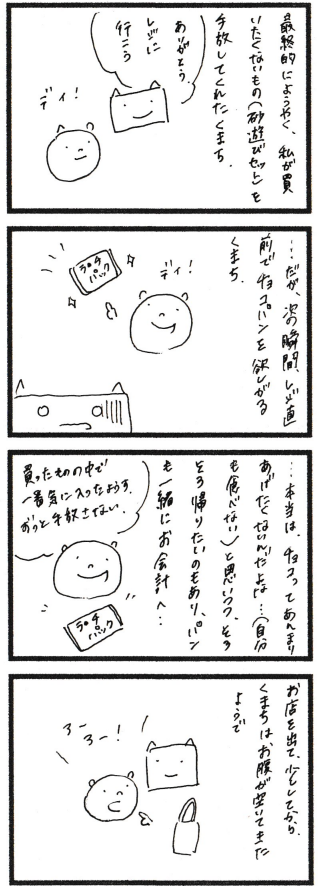 最終的にようやく、私が買
いたくないもの(砂遊びセット)を
手放してくれたくまち。
ありがとう、
レジに
行こう
ディ!
…だが、次の瞬間、レジ直
前でチョコパンを欲しがる
くまち。
ディ!
ランチ
パック
…本当は、チョコってあんまり
あげたくないんだよな…(自分
も食べない)と思いつつ、そろ
そろ帰りたいのもあり、パン
も一緒にお会計へ…
買ったものの中で
一番気に入ったようす。
ずっと手放さない。
ランチ
パック
お店を出て、少ししてから、
くまちはお腹が空いてきた
ようで
ろー
ろー!